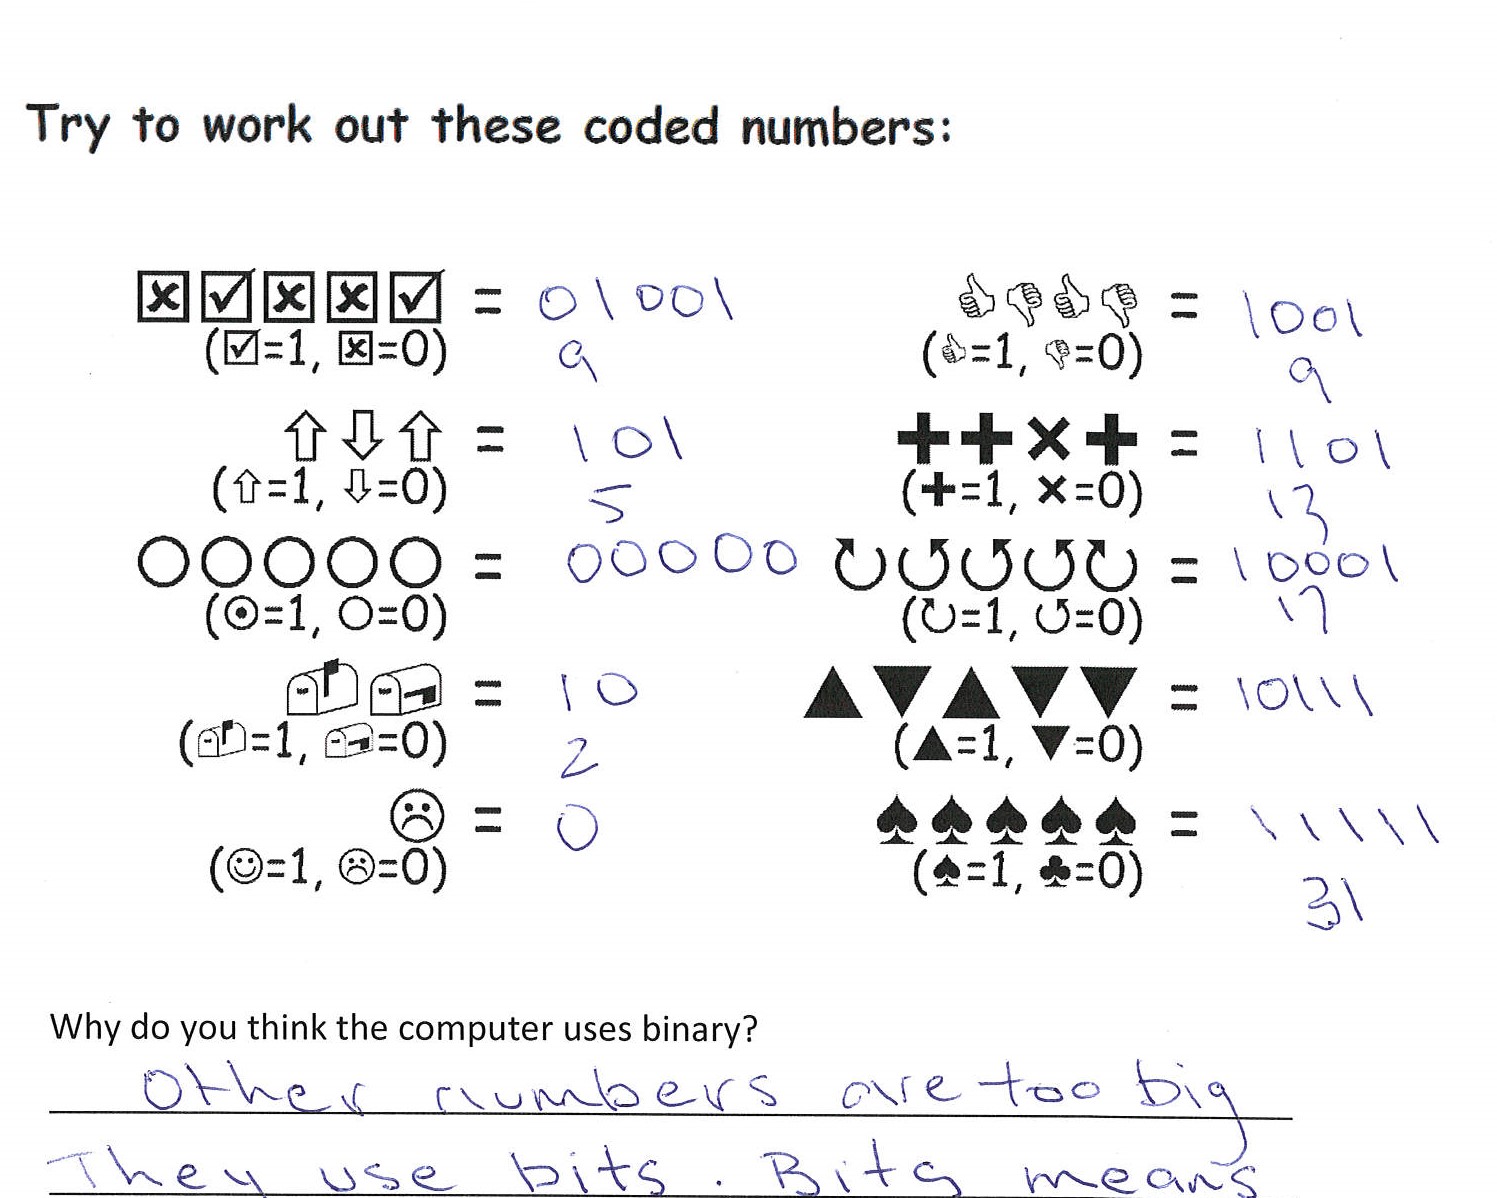 Try to work out these coded numbers:
= 01001
(=1, =0)
9
= 1001
(=1, =0)
9
= 101
(=1, =0)
5
= 1101
(=1, =0)
13
= 00000
(=1, =0)
= 10001
(=1, =0)
17
= 10
(=1, =0)
2
= 10111
(=1, =0)
= 0
(=1, =0)
= 11111
(=1, =0)
31
Why do you think the computer uses binary?
Other numbers are too big
They use bits. Bits means